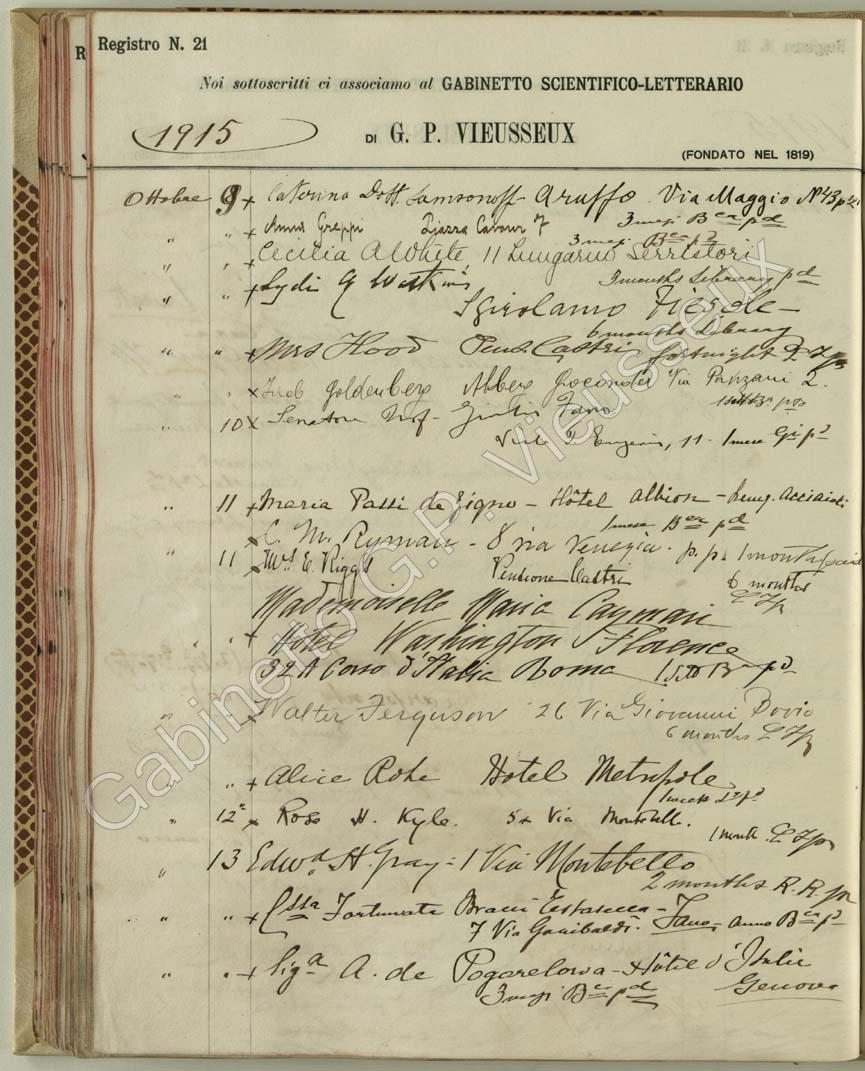 Registro N. 21
Noi sottoscritti ci associamo al GABINETTO SCIENTIFICO-LETTERARIO
1915
DI G. P. VIEUSSEUX
(FONDATO NEL 1819)
Ottobre 9 x Caterina Dott. Samsonoff Aruffo Via Maggio No 43
" " x Anna Greppi Piazza Cavour 7 3 mesi Bca pd
3 mesi Bca pd
" " x Cecilia A White 11 Lungarno Serristori
" " x Lydia G Watkins 3 months Library pd
S Girolamo Fiesole
6 months Library
" " x Mrs Hood Pens. Castri fortnight
" " x Jacob Goldenberg Albergo Via Panzani 2.
10 x Senatore Prof. Giulio Fano
Viale P. Eugenio, 11. 1 mese
" 11 x Maria Passi de - Hôtel Albion - Lung. Acciaioli
1 mese Bca pd
" x C. M. Ryman - 8 via Venezia. p.p. 1 month paid
11 x Mrs E. Riggs Pensione Castri 6 months
Mademoiselle Maria
" " x Hotel Washington Florence
32 A Corso d'Italia Roma
" x Walter Ferguson 26 Via Giovanni Bovio
6 months
" " x Alice Rohe Hotel Metropole
1 week
" 12 x Rose H. Kyle. 5 Via Montebello.
1 month
" 13 Edwd. H. Gray = 1 Via Montebello
2 months R. R.
" " x Cssa Fortunata Bracci - Fano, anno Bca pd
7 Via Garibaldi.
" " x Siga A. de Pogarelowa - Hôtel d'Italie
3 mesi Bca pd Genova
Gabinetto G.P. Vieusseux